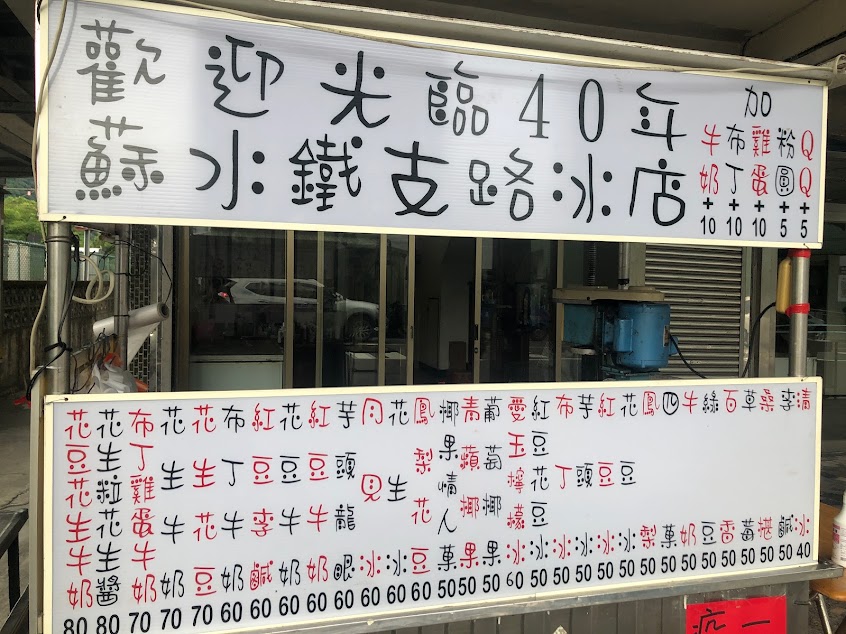 歡迎光臨40年
蘇水鐵支路冰店
加
牛奶+10
布丁+10
雞蛋+10
粉圓+5
QQ+5
花豆花生牛奶80
花生粒花生醬80
布丁雞蛋牛奶70
花生牛奶70
花生花豆70
布丁牛奶60
紅豆李鹹60
花豆牛奶60
紅豆牛奶60
芋頭龍眼60
月見冰60
花生冰60
鳳梨花豆60
椰果情人菓50
青蘋椰果50
葡萄椰果50
愛玉檸檬冰60
紅豆花豆冰50
布丁冰50
芋頭冰50
紅豆冰50
花豆冰50
鳳梨50
四菓50
牛奶50
綠豆50
百香50
草莓50
桑椹50
李鹹50
清冰40